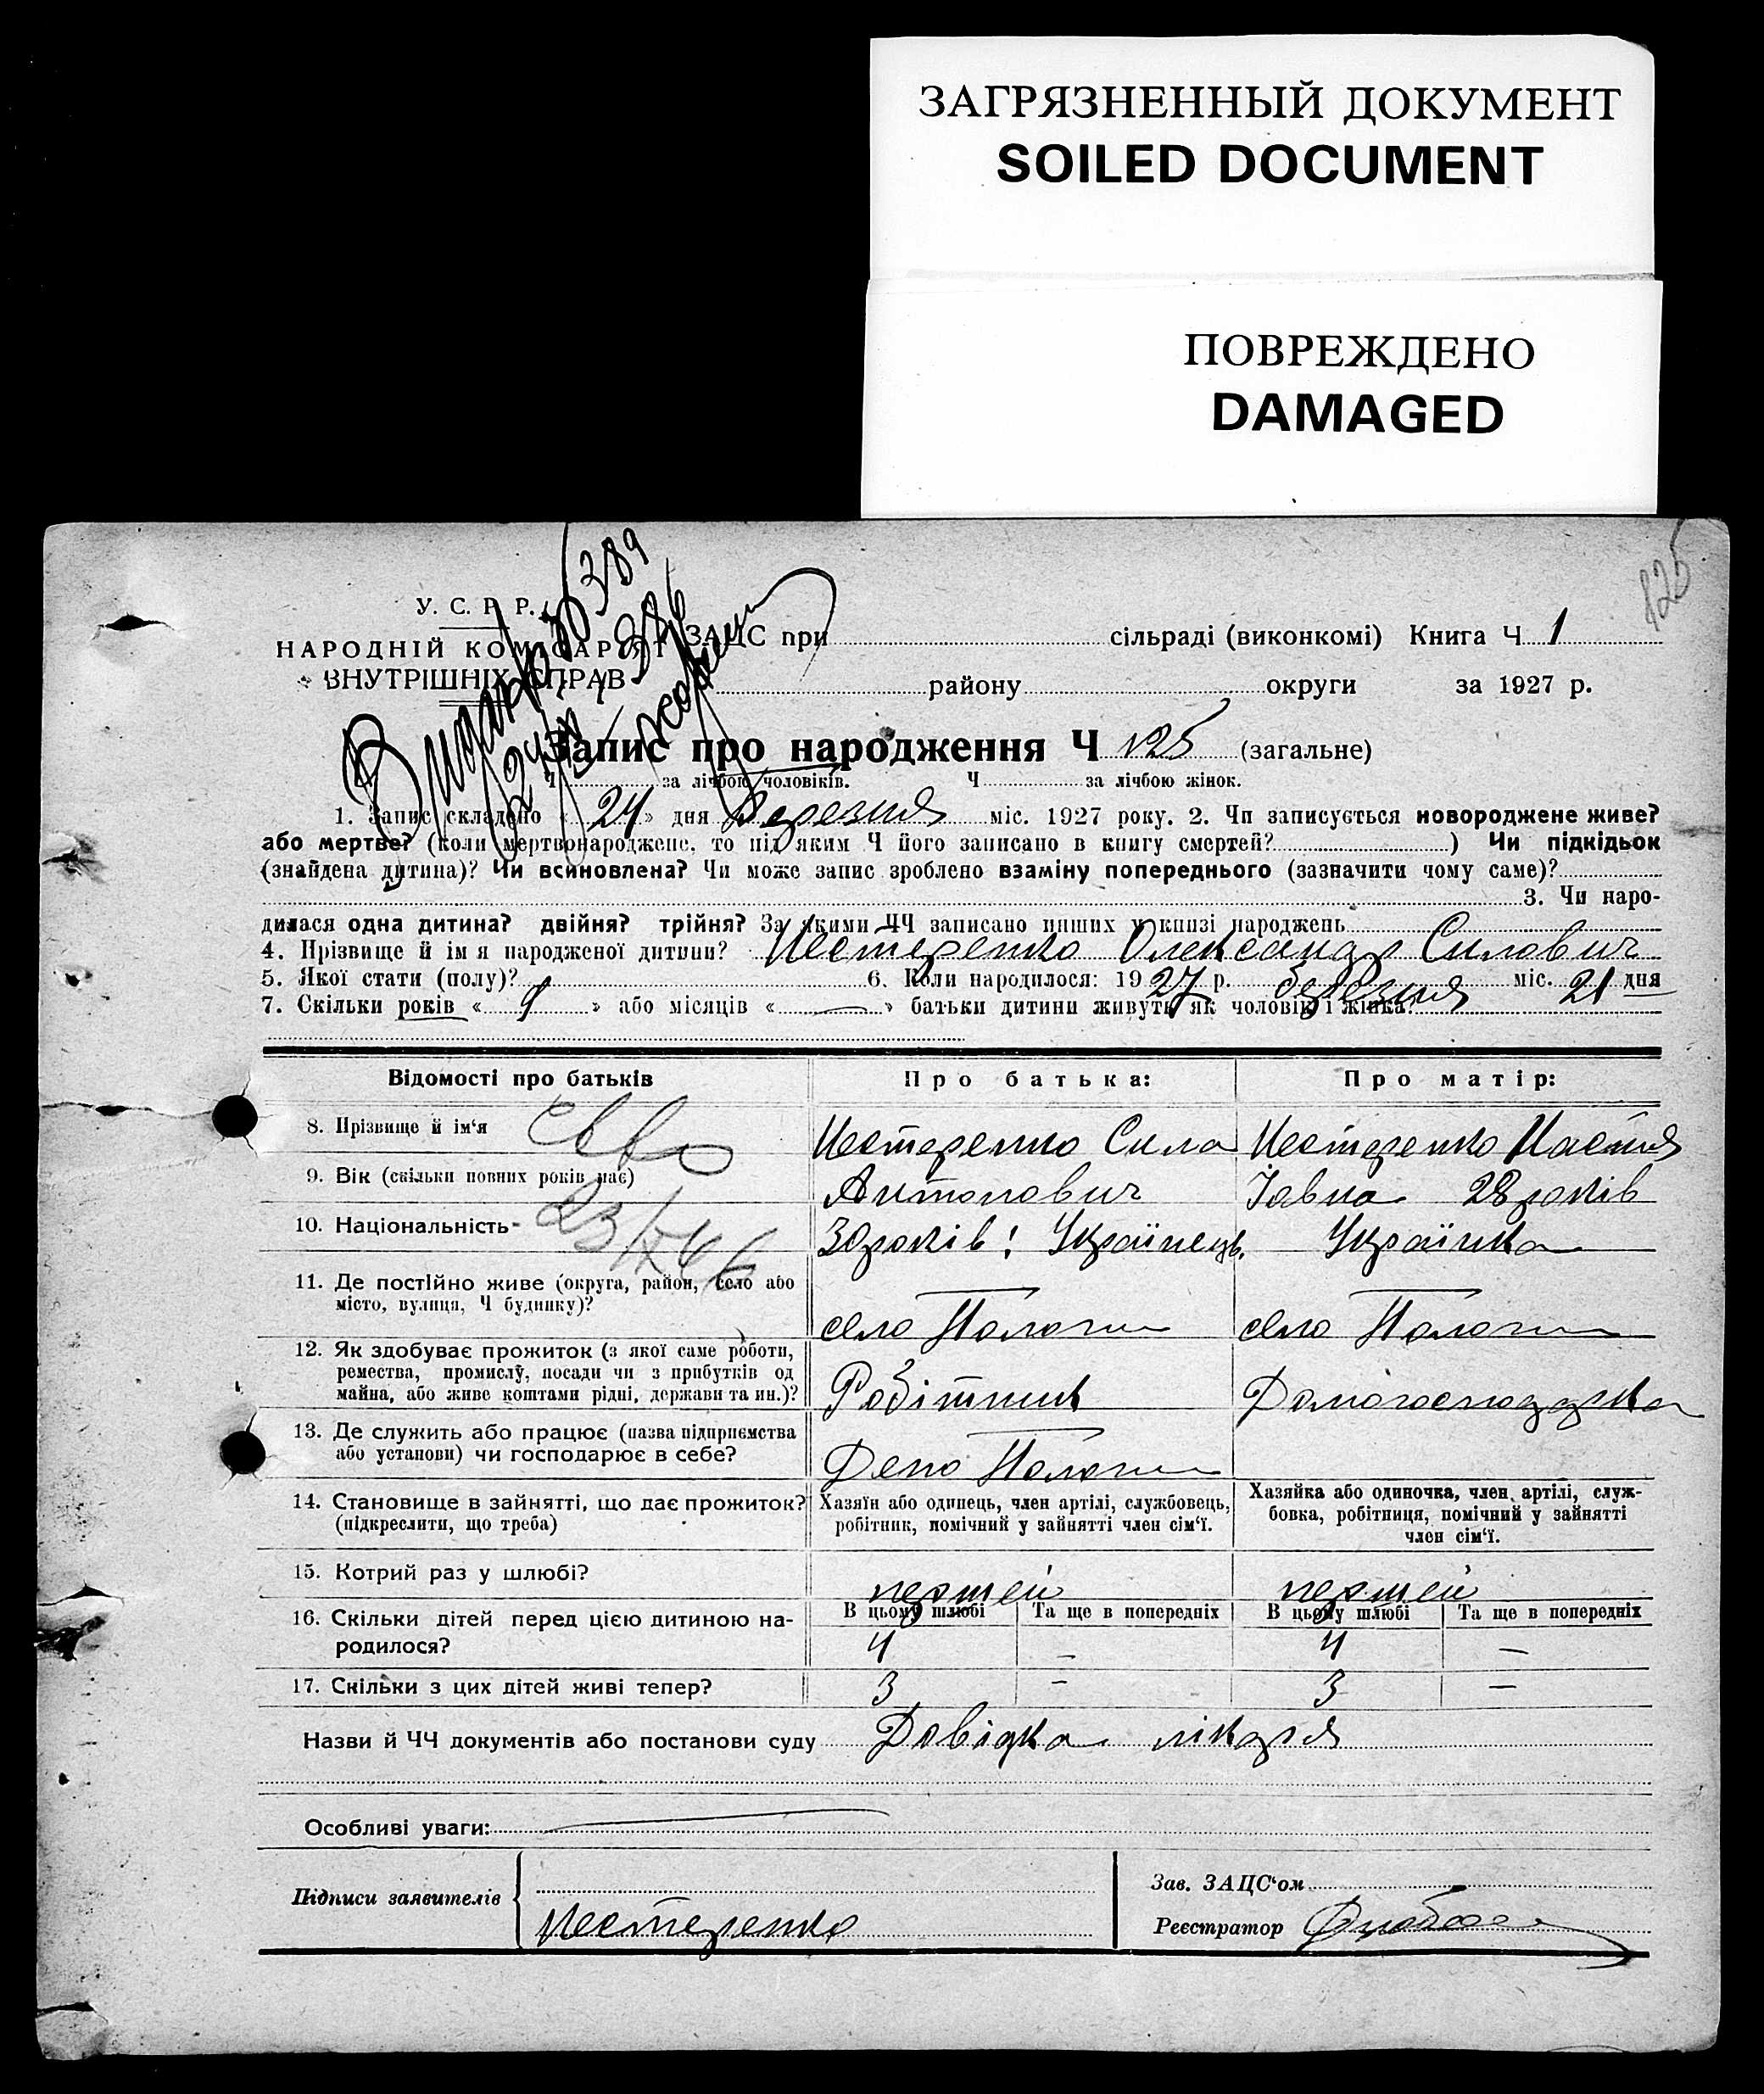 ЗАГРЯЗНЕННЫЙ ДОКУМЕНТ
SOILED DOCUMENT
ПОВРЕЖДЕНО
DAMAGED
125
389
У. С. Р. Р.
НАРОДНІЙ КОМІСАРІЯТ
ВНУТРІШНІХ СПРАВ
ЗАЦС при сільраді (виконкомі) Книга Ч 1
району округи за 1927 р.
Запис про народження Ч 125 (загальне)
Ч за лічбою чоловіків. Ч за лічбою жінок.
1. Запис складено « 24 » дня березня міс. 1927 року. 2. Чи записується новороджене живе?
або мертве? (коли мертвонароджене, то під яким Ч його записано в книгу смертей? ) Чи підкідьок
(знайдена дитина)? Чи всиновлена? Чи може запис зроблено взаміну попереднього (зазначити чому саме)?
3. Чи наро-
дилася одна дитина? двійня? трійня? За якими ЧЧ записано инших у книзі народжень
4. Прізвище й ім я народженої дитини? Нестеренко Олександр Силович
5. Якої стати (полу)? 6. Коли народилося: 1927 р. березня міс. 21 дня
7. Скільки років « 9 » або місяців « — » батьки дитини живуть як чоловік і жінка?
Відомості про батьків Про батька: Про матір:
8. Прізвище й ім'я Нестеренко Сила Нестеренко Настя
9. Вік (скільки повних років має) Антонович Іовна 28 років
10. Національність 30 років! Українець. Українка
11. Де постійно живе (округа, район, село або
місто, вулиця, Ч будинку)? село Пологи село Пологи
12. Як здобуває прожиток (з якої саме роботи,
ремества, промислу, посади чи з прибутків од
майна, або живе коштами рідні, держави та ин.)? Робітник Домогосподарка
13. Де служить або працює (назва підприємства
або установи) чи господарює в себе? Депо Пологи
14. Становище в зайнятті, що дає прожиток?
(підкреслити, що треба)
Хазяїн або одинець, член артілі, службовець,
робітник, помічний у зайнятті член сім'ї.
Хазяйка або одиночка, член артілі, служ-
бовка, робітниця, помічний у зайнятті
член сім'ї.
15. Котрий раз у шлюбі? первией первией
16. Скільки дітей перед цією дитиною на-
родилося?
В цьому шлюбі Та ще в попередніх В цьому шлюбі Та ще в попередніх
4 – 4 –
17. Скільки з цих дітей живі тепер? 3 – 3 –
Назви й ЧЧ документів або постанови суду Довідка лікаря
Особливі уваги:
Підписи заявителів
Нестеренко
Зав. ЗАЦС'ом
Реєстратор